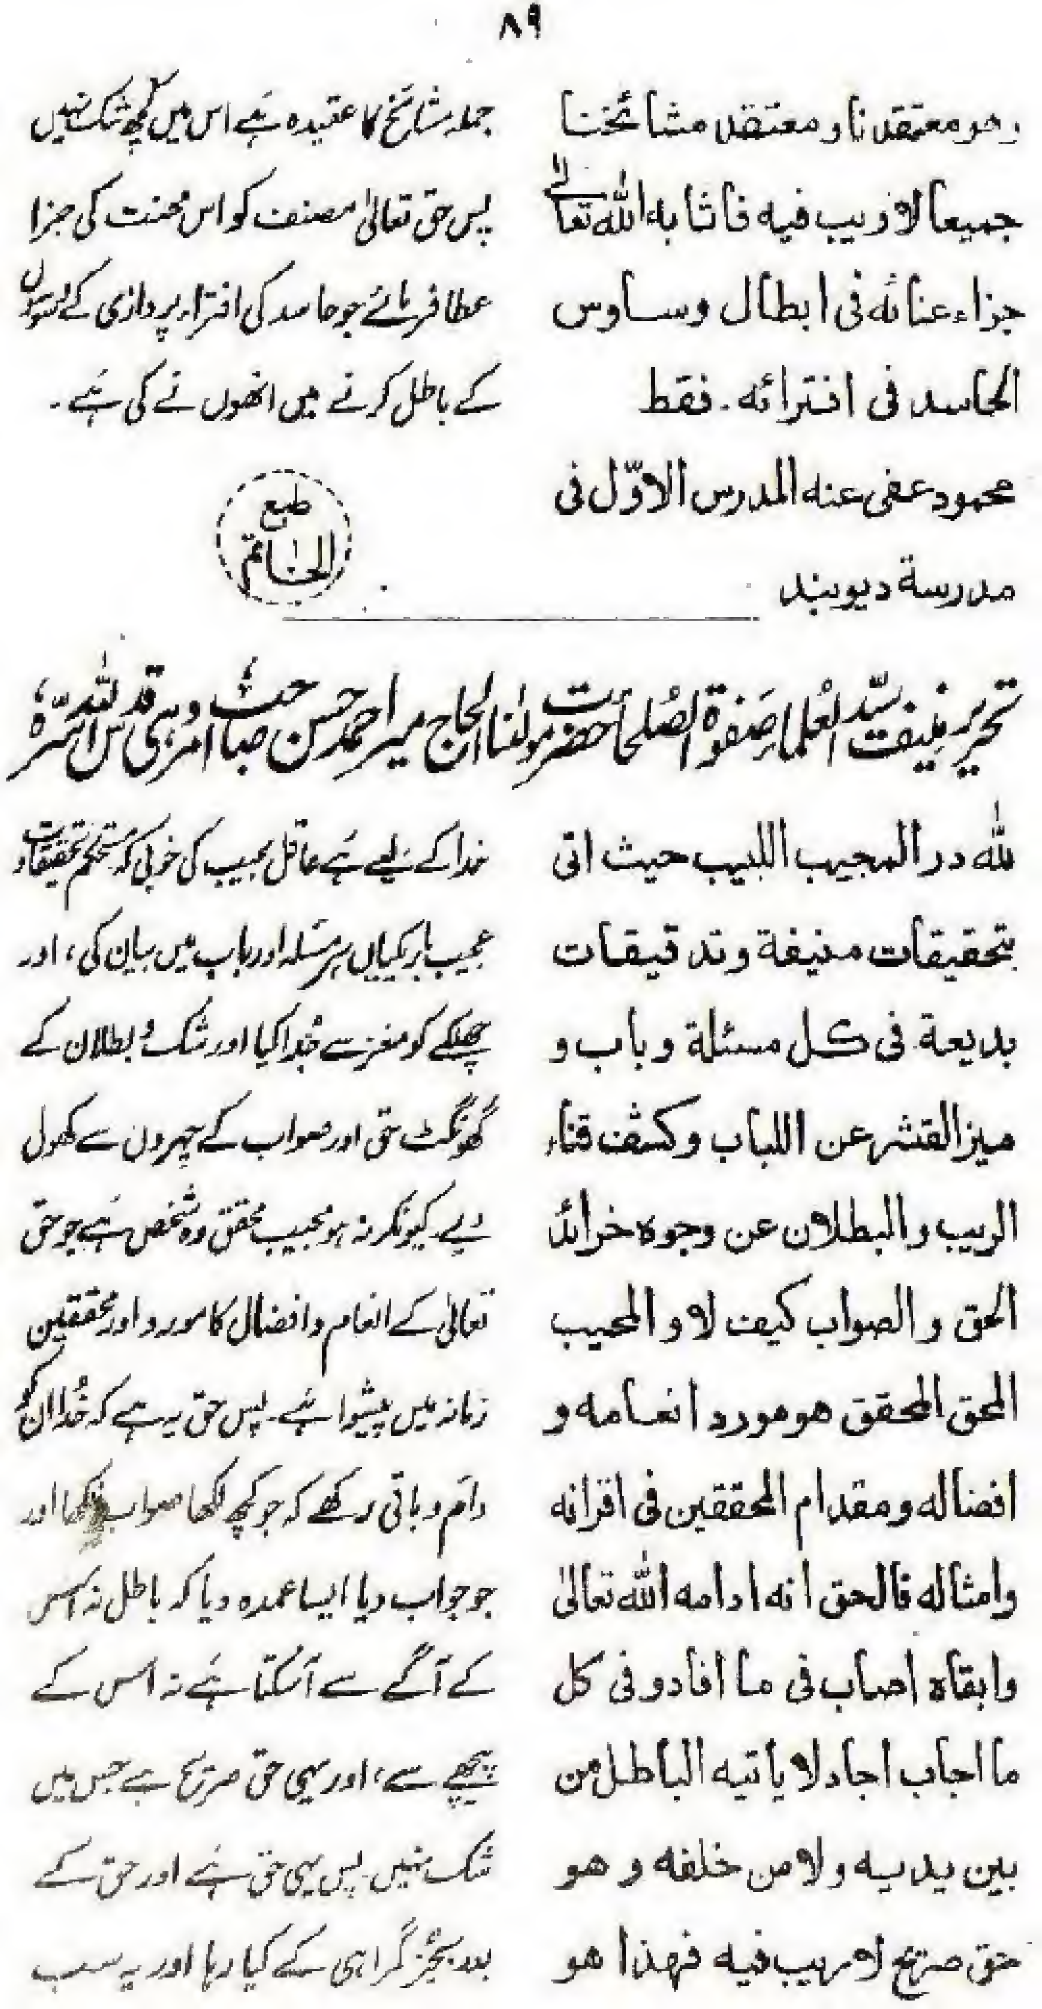 ۸۹
وهو معتقدنا ومعتقد مشائخنا
جميعا لا ريب فيه فاثابه الله تعالے
جزاء عنائه فی ابطال وساوس
الحاسد فی افترائه۔ فقط
محمود عفی عنه المدرس الاوّل فی
مدرسة ديوبند
جملہ مشائخ کا عقیدہ ہے اس میں کچھ شک نہیں
پس حق تعالیٰ مصنف کو اس محنت کی جزا
عطا فرمائے جو حاسد کی افتراء پردازی کے وسوسوں
کے باطل کرنے میں انھوں نے کی ہے۔
طبع
الخاتم
تحریر منیف سیّد العلماء صفوۃ الصلحاء حضرت مولٰنا الحاج میر احمد حسن صاحبؒ امروہی قدس اللہ سرّہٗ
لله در المجيب اللبيب حيث اتى
بتحقيقات منيفة وتدقيقات
بديعة فی كل مسئلة وباب و
ميز القشر عن اللباب وكشف قناع
الريب والبطلان عن وجوه خرائد
الحق والصواب كيف لا والمجيب
المحق المحقق هو مورد انعامه و
افضاله ومقدام المحققين فی اقرانه
وامثاله فالحق انه ادامه الله تعالىٰ
وابقاه اصاب فی ما افاد وفی كل
ما اجاب اجاد لا ياتيه الباطل من
بين يديه ولا من خلفه وهو
حق صريح لا ريب فيه فهذا هو
خدا کے لیے ہے عاقل مجیب کی خوبی کہ مستحکم تحقیقات و
عجیب باریکیاں ہر مسئلہ اور باب میں بیان کی، اور
چھلکے کو مغز سے جُدا کیا اور شک و بطلان کے
گھونگٹ حق اور صواب کے چہروں سے کھول
دیے کیونکر نہ ہو مجیب محقق وہ شخص ہے جو حق
تعالیٰ کے انعام و افضال کا مورد اور محققین
زمانہ میں پیشوا ہے۔ پس حق یہ ہے کہ خُدا ان کو
دائم و باقی رکھے کہ جو کچھ لکھا صواب لکھا اور
جو جواب دیا ایسا عمدہ دیا کہ باطل نہ اس
کے آگے سے آسکتا ہے نہ اس کے
پیچھے سے، اور یہی حق صریح ہے جس میں
شک نہیں۔ پس یہی حق ہے اور حق کے
بعد بجز گمراہی کے کیا رہا اور یہ سب